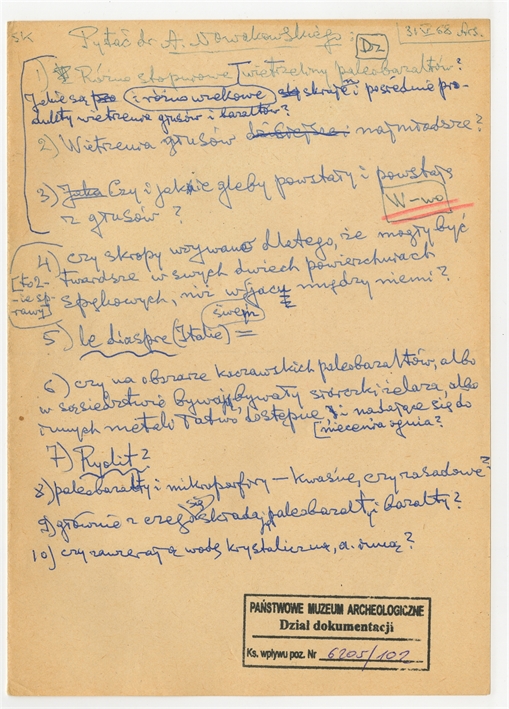 SK
Pytać dr A. Nowakowskiego:
Dz
31 V 68 Ars.
1) Różno stopniowe wietrzeliny paleobazaltów?
Jakie są różnowiekowe skruje i pośrednie pro-
dukty wietrzenia głusów i bazaltów?
2) Wietrzenia głusów najmłodsze?
3) Czy i jakie gleby powstały i powstają
z głusów?
W-wa
4) czy skropy używano dlatego, że mogły być
twardsze w swych dwiech powierzchniach
spękowych, niż w między niemi?
5) le diaspre (Italie) =
6) czy na obszarze kaczawskich paleobazaltów, albo
w sąsiedztwie bywają, bywały siarczki żelaza albo
innych metali łatwo dostępne i nadające się do
niecenia ognia?
7) Ryolit?
8) paleobazalty i mikroporfiry – kwaśne, czy zasadowe?
9) głównie z czego się składają paleobazalty i bazalty?
10) czy zawierają wodę krystaliczną, a. inną?
PAŃSTWOWE MUZEUM ARCHEOLOGICZNE
Dział dokumentacji
Ks. wpływu poz. Nr 6205/102